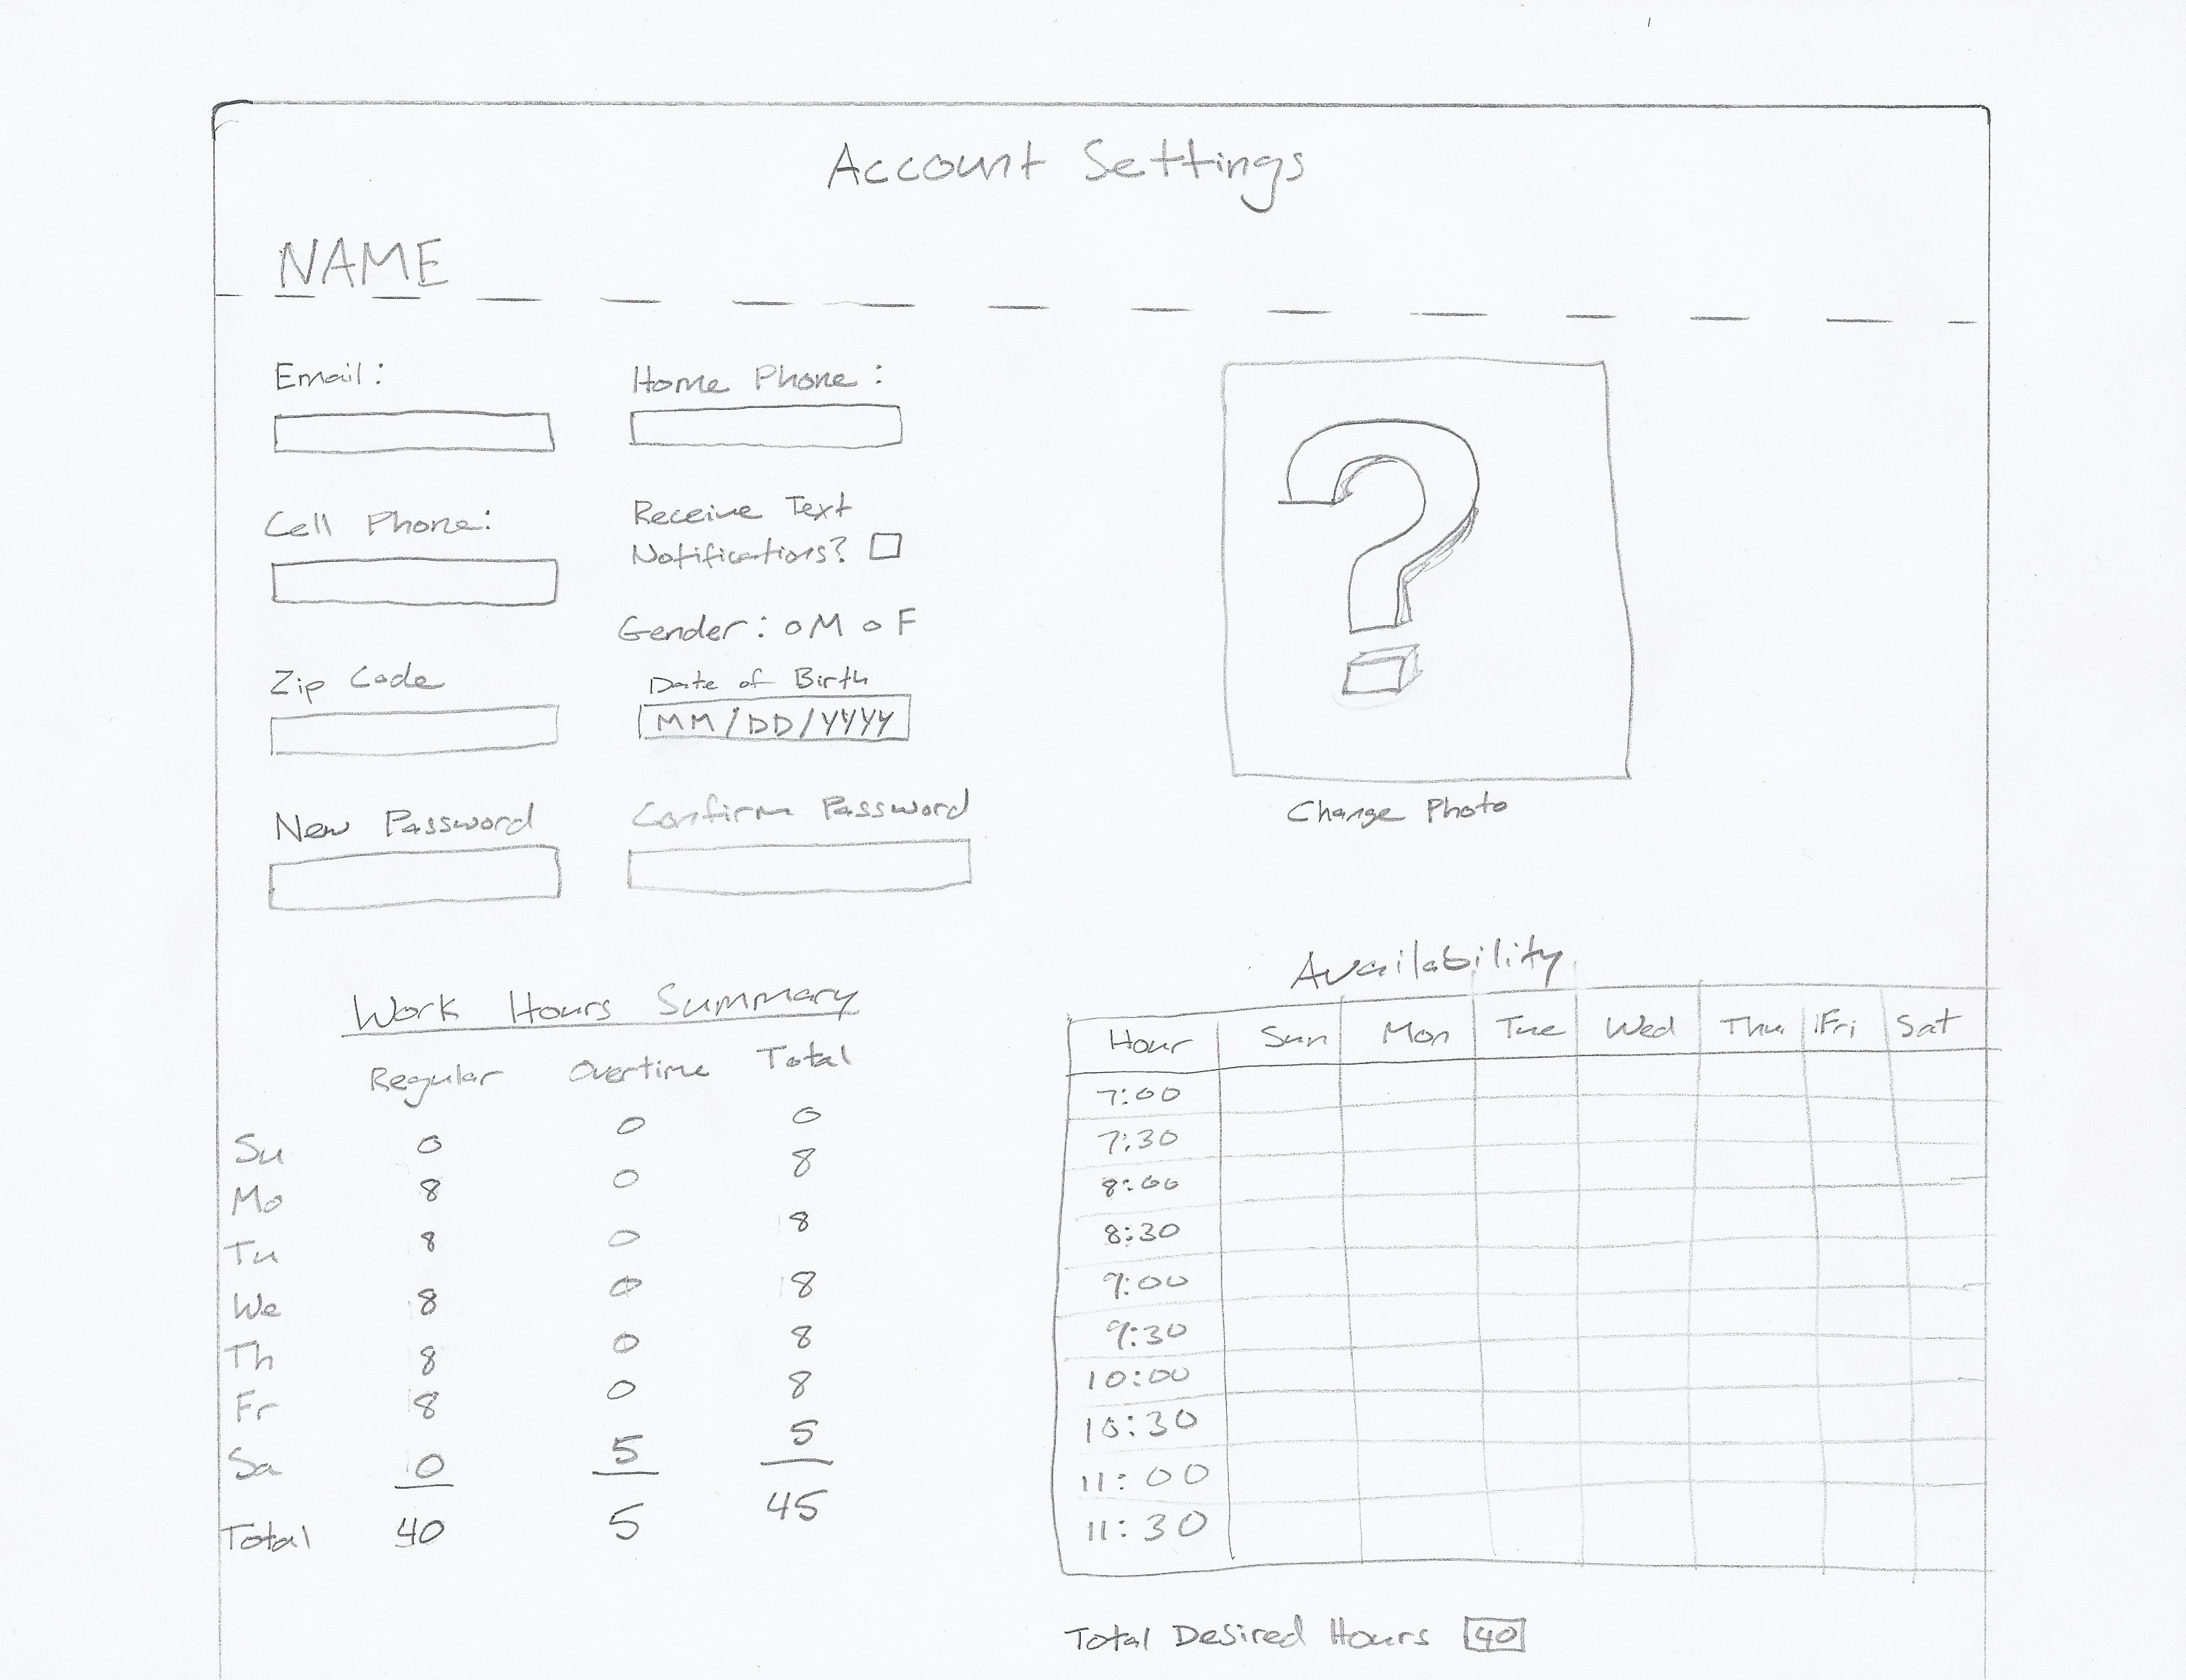 Account Settings
NAME
Email:
Home Phone:
Cell Phone:
Receive Text
Notifications?
Gender: M F
Zip Code
Date of Birth
MM/DD/YYYY
New Password
Confirm Password
?
Change Photo
Work Hours Summary
Regular Overtime Total
Su 0 0 0
Mo 8 0 8
Tu 8 0 8
We 8 0 8
Th 8 0 8
Fr 8 0 8
Sa 0 5 5
Total 40 5 45
Availability
Hour Sun Mon Tue Wed Thu Fri Sat
7:00
7:30
8:00
8:30
9:00
9:30
10:00
10:30
11:00
11:30
Total Desired Hours 40